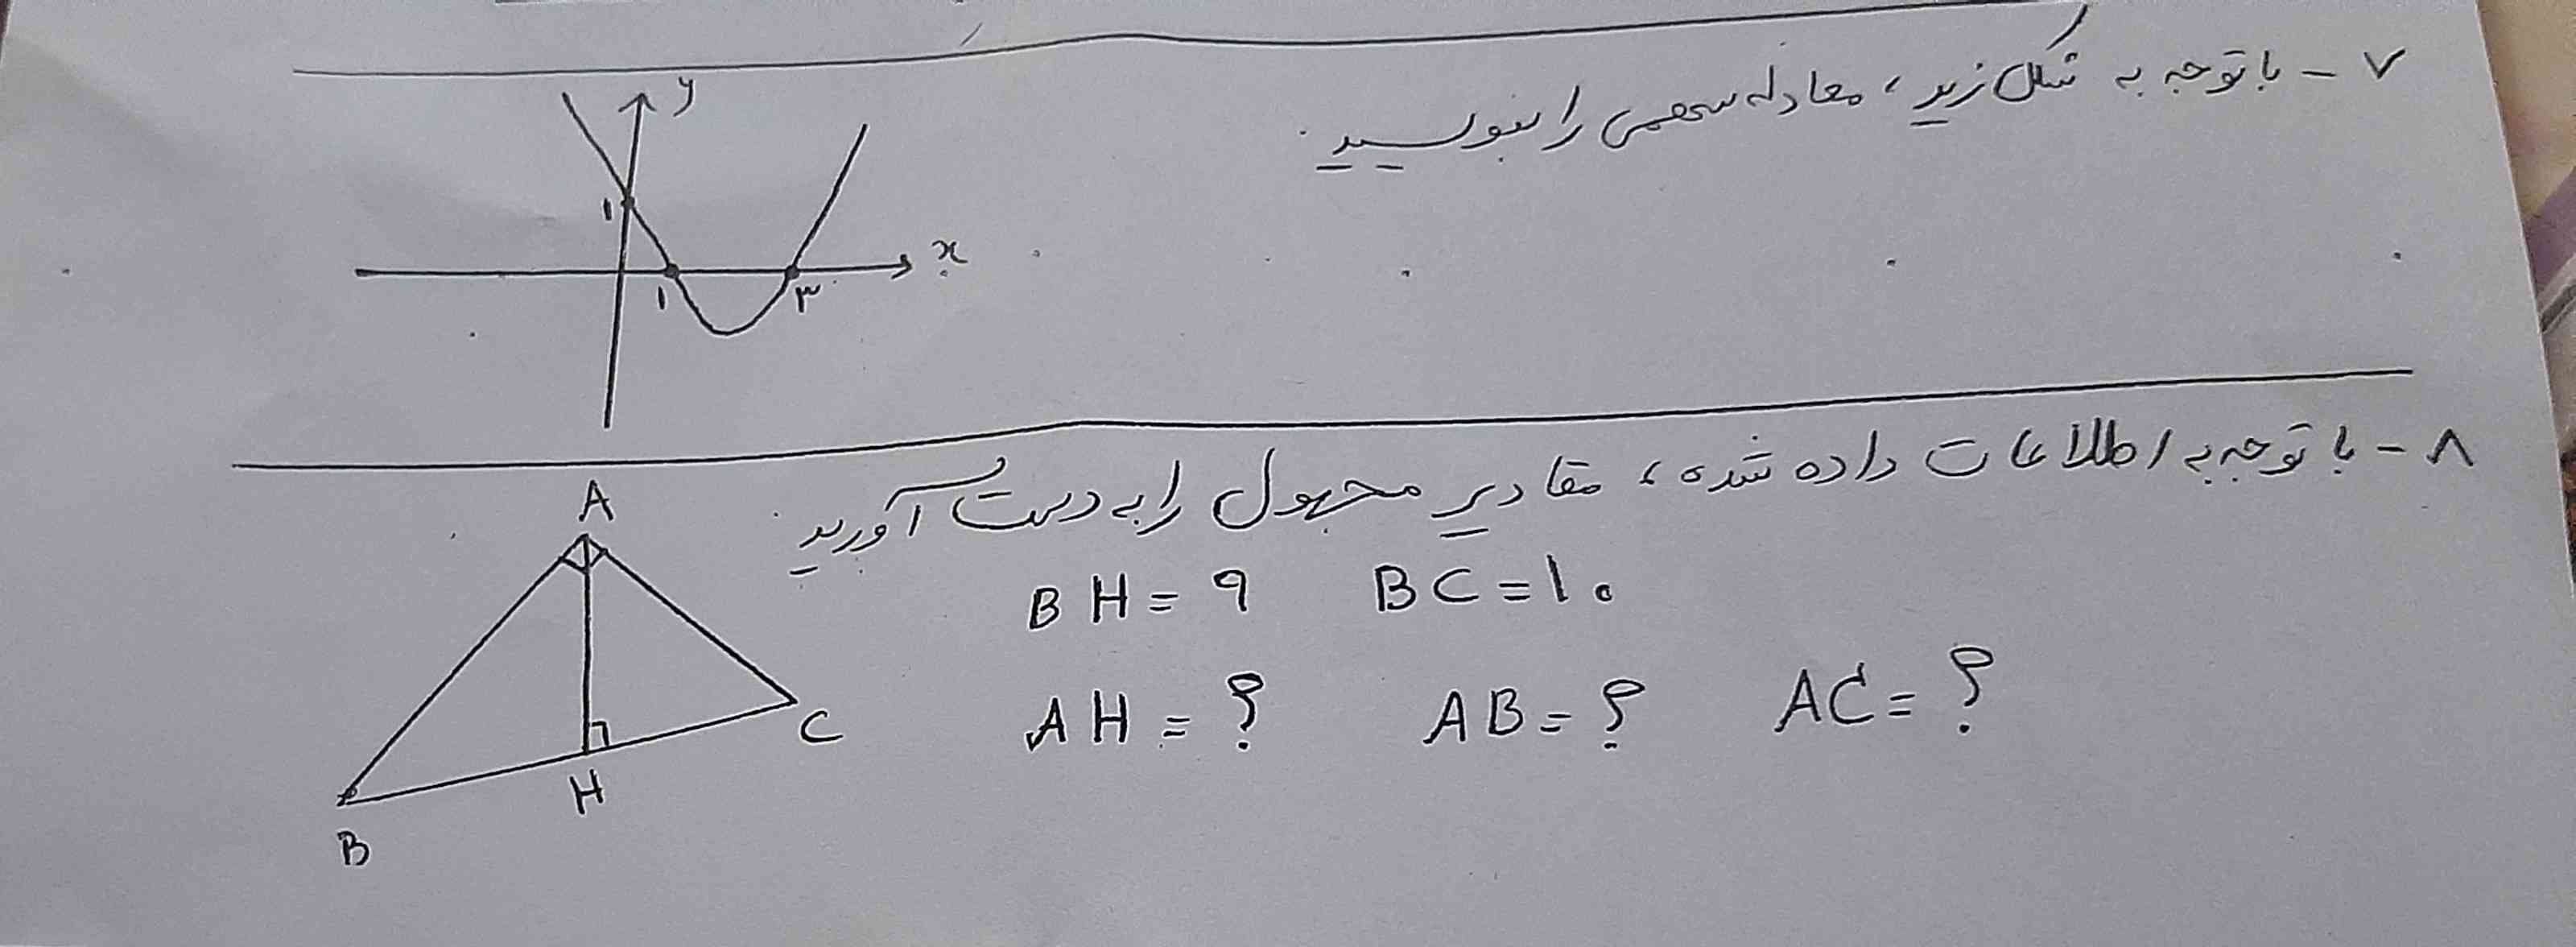 ۷ - با توجه به شکل زیر، معادله سهمی را بنویسید.
y
۱
x
۱ ۳
۸ - با توجه به اطلاعات داده شده، مقادیر مجهول را به دست آورید.
A
BH = ۹ BC = ۱۰
AH = ؟ AB = ؟ AC = ؟
C
H
B